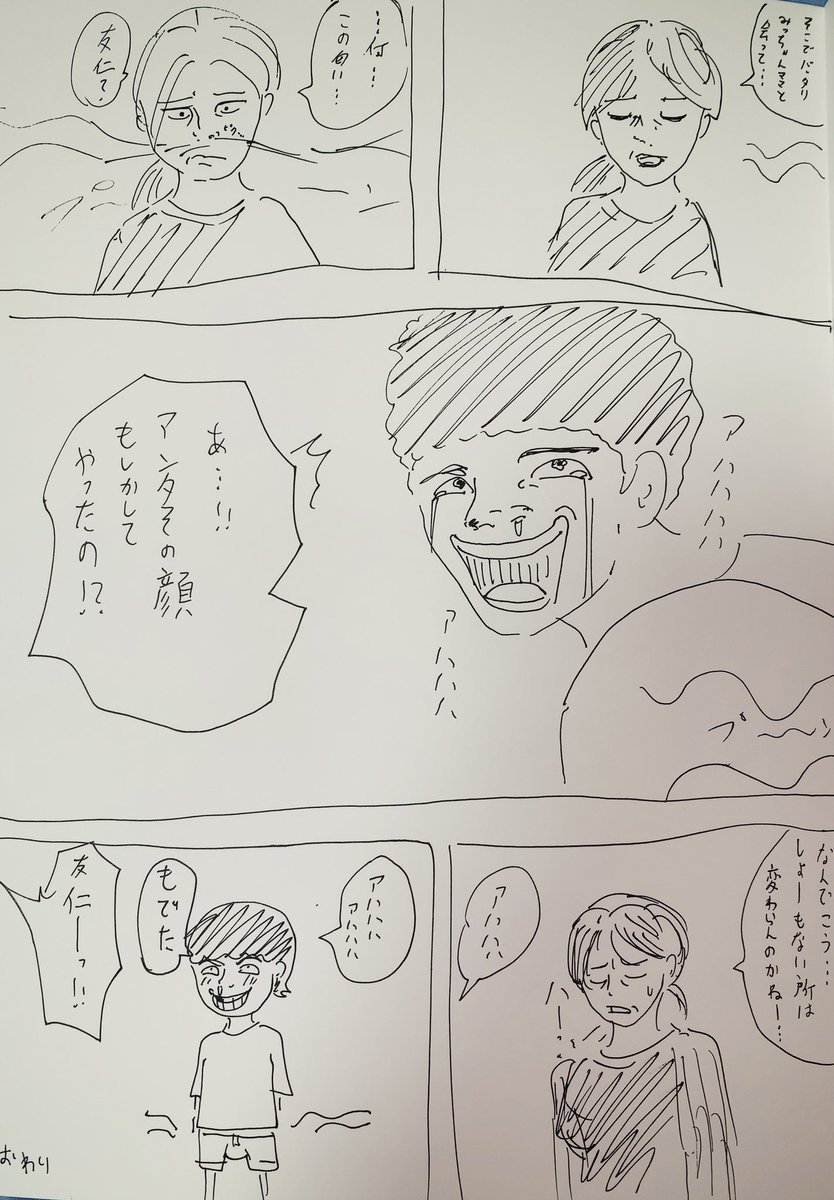 そこでバッタリ
みっちゃんママと
会って…
…何…
この匂い…
友仁?
プーン
あ…!!
アンタその顔
もしかして
やったの!?
アハハハハ
アハハハハ
プ〜ン
なんでこう…
しょーもない所は
変わらんのかねー…
アハハハ
ハーっ…
アハハハ
アハハハ
もでた
友仁ーーっ!!
おわり